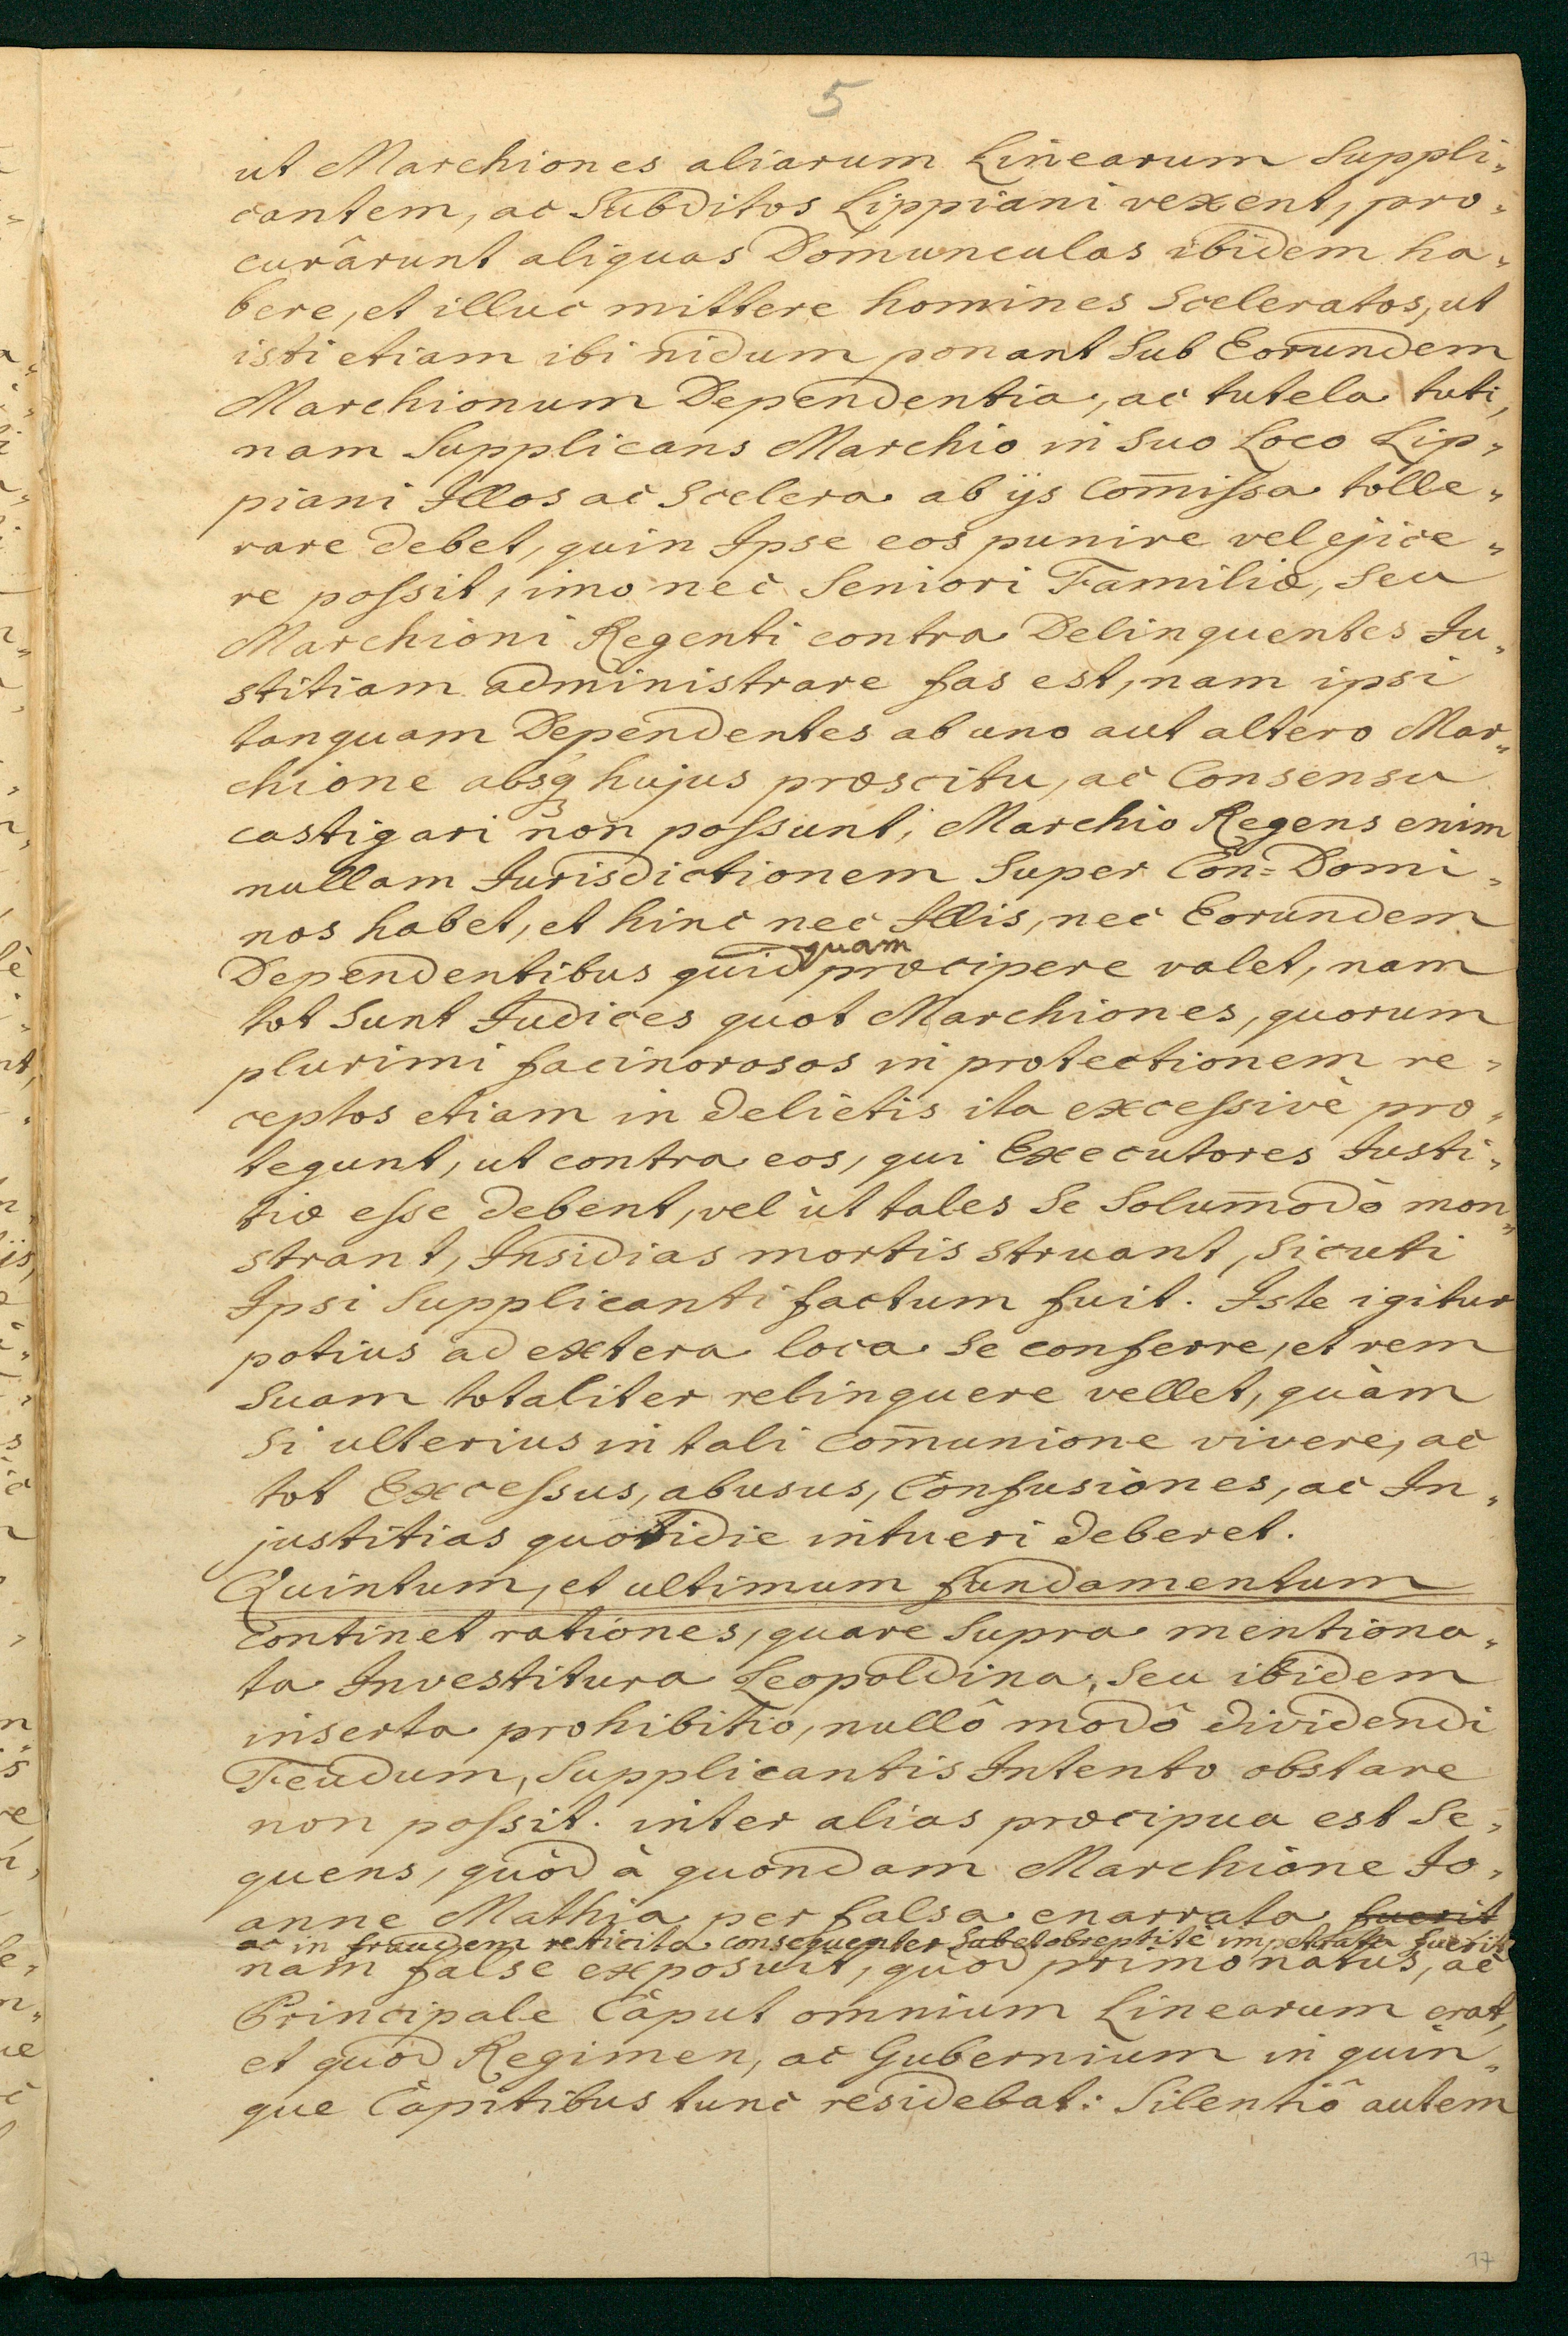 5
ut Marchiones aliarum Linearum Suppli„
cantem, ac Subditos Lippiani vexent, pro„
curârunt aliquas Domunculas ibidem ha„
bere, et illuc mittere homines Sceleratos, ut
isti etiam ibi nidum ponant Sub Eorundem
Marchionum Dependentia, ac tutela tuti,
nam Supplicans Marchio in Suo Loco Lip„
piani Illos ac Scelera ab ijs Com̄iſsa tolle„
rare debet, quin Ipse eos punire vel ejice„
re poſsit, imo nec Seniori Familiæ, Seu
Marchioni Regenti contra Delinquentes Ju„
stitiam administrare fas est, nam ipsi
tanquam Dependentes ab uno aut altero Mar„
chione absq3 hujus præscitu, ac Consensu
castigari non poſsunt; Marchio Regens enim
nullam Jurisdictionem Super Con=Domi„
nos habet, et hinc nec Illis, nec Eorundem
quam
Dependentibus quid præcipere valet, nam
tot Sunt Judices quot Marchiones, quorum
plurimi facinorosos in protectionem re„
ceptos etiam in delictis ita exceſsivè pro„
tegunt, ut contra eos, qui Executores Justi„
tiæ eſse debent, vel ùt tales Se Solum̄odò mon„
strant, Insidias mortis struant, Sicuti
Ipsi Supplicanti factum fuit. Iste igitur
potius ad extera loca Se conferre, et rem
Suam totaliter relinquere vellet, quàm
Si ulterius in tali com̄unione vivere, ac
tot Exceſsus, abusus, Confusiones, ac In„
justitias quotidie intueri deberet.
Quintum, et ultimum fundamentum
Continet rationes, quare Supra mentiona„
ta Investitura Leopoldina, Seu ibidem
inserta prohibitio, nullô modô dividendi
Feudum, Supplicantis Intento obstare
non poſsit. inter alias præcipua est Se„
quens, quòd à quondam Marchione Jo„
anne Mathia per falsa enarrata fuerit
ac in fraudem reticita consequenter Sub et obreptitè impetrata fuerit
nam falsè exposuit, quòd primonatus, ac
Principale Caput omnium Linearum erat,
et quòd Regimen, ac Gubernium in quin„
que Capitibus tunc residebat: Silentiô autem
17